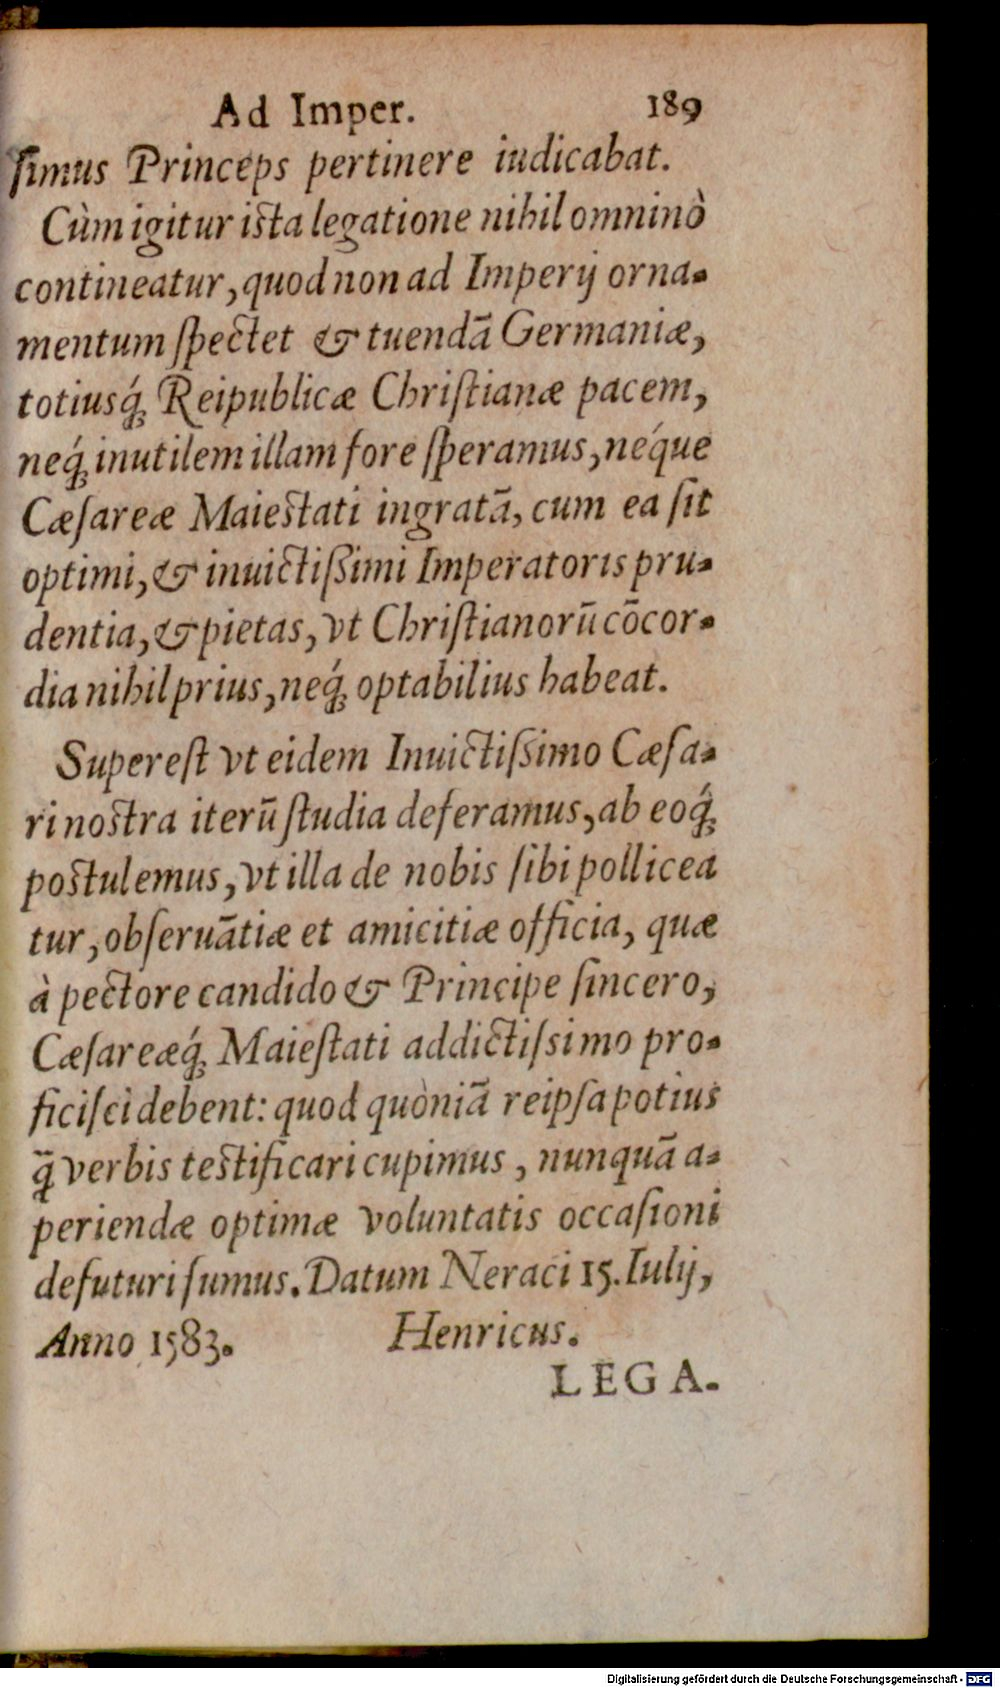 Ad Imper. 189
ſimus Princeps pertinere iudicabat.
Cùm igitur ista legatione nihil omninò
contineatur, quod non ad Imperij orna-
mentum ſpectet & tuendā Germaniæ,
totiusq́; Reipublicæ Chriſtianæ pacem,
neq́; inutilem illam fore ſperamus, néque
Cæſareæ Maiestati ingratā, cum ea ſit
optimi, & inuictiſſimi Imperatoris pru-
dentia, & pietas, vt Chriſtianorū cōcor-
dia nihil prius, neq́; optabilius habeat.
Supereſt vt eidem Inuictiſſimo Cæſa-
ri nostra iterū ſtudia deferamus, ab eoq́;
postulemus, vt illa de nobis ſibi pollicea
tur, obſeruātiæ et amicitiæ officia, quæ
à pectore candido & Principe ſincero,
Cæſareæq́; Maieſtati addictiſsimo pro-
ficiſci debent: quod quòniā reipſa potius
q̄ verbis testificari cupimus, nunquā a-
periendæ optimæ voluntatis occaſioni
defuturi ſumus. Datum Neraci 15. Iulij,
Anno 1583. Henricus.
LEGA-
Digitalisierung gefördert durch die Deutsche Forschungsgemeinschaft - DFG